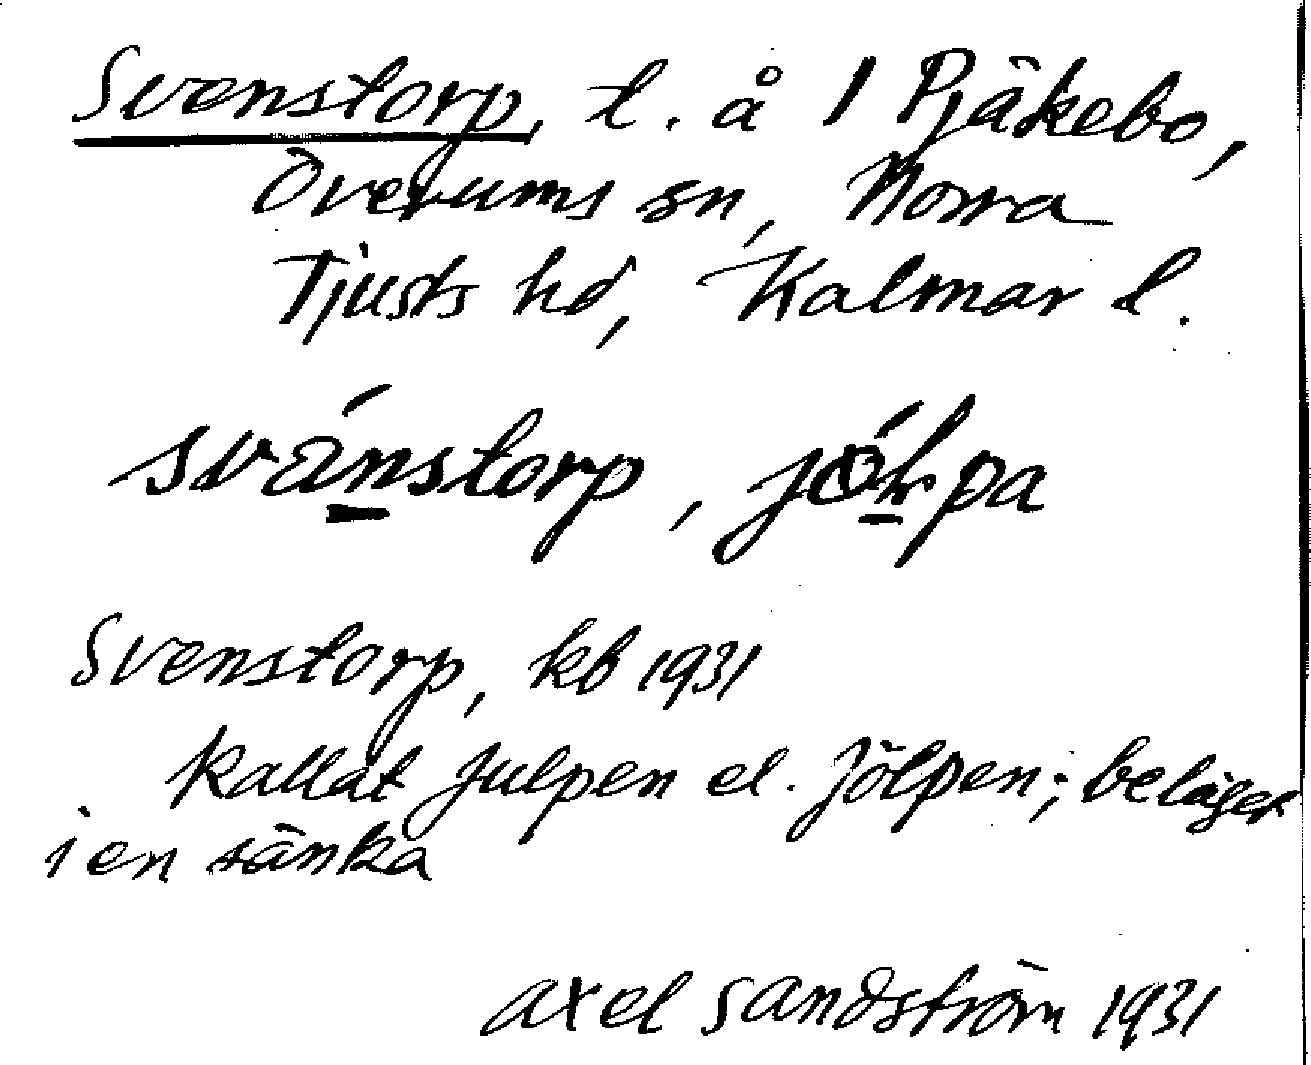 Svenstorp, t. å 1 Pjäkebo,
Överums sn, Norra
Tjusts hd, Kalmar l.
svänstorp,
Svenstorp, kb 1931
Kallat Julpen el. Jölpen; beläget
i en sänka
Axel Sandström 1931